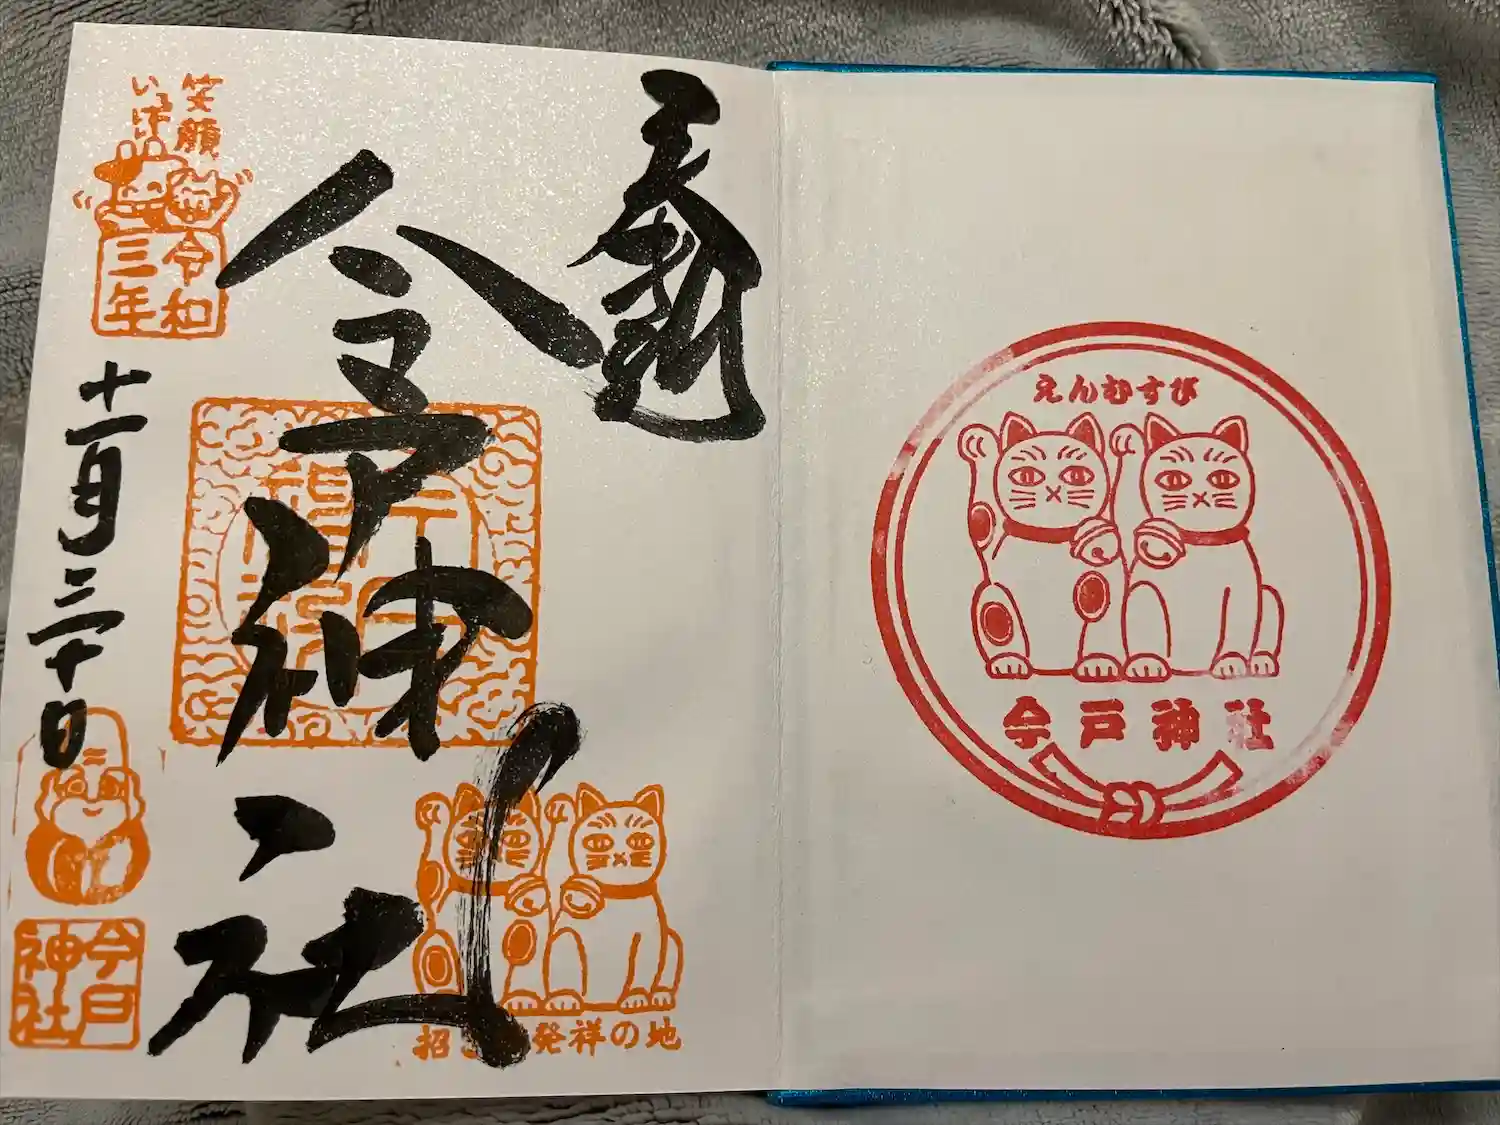 奉拝
今戸神社
笑顔
いっぱい
令和
三年
十一月三十日
今戸
神社
発祥の地
えんむすび
今戸神社